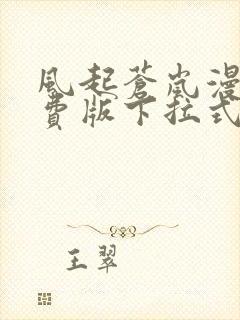 風起蒼嵐漫
費版下拉式
王翠